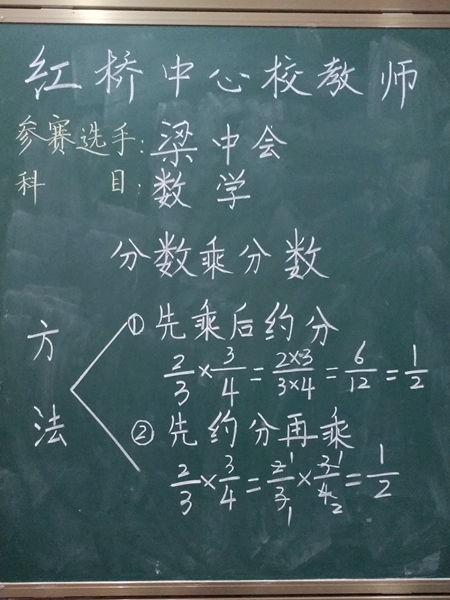 红桥中心校教师
参赛选手:梁中会
科目:数学
分数乘分数
方法
①先乘后约分
2/3×3/4=2×3/3×4=6/12=1/2
②先约分再乘
2/3×3/4=2̶1/3̶1×3̶1/4̶2=1/2